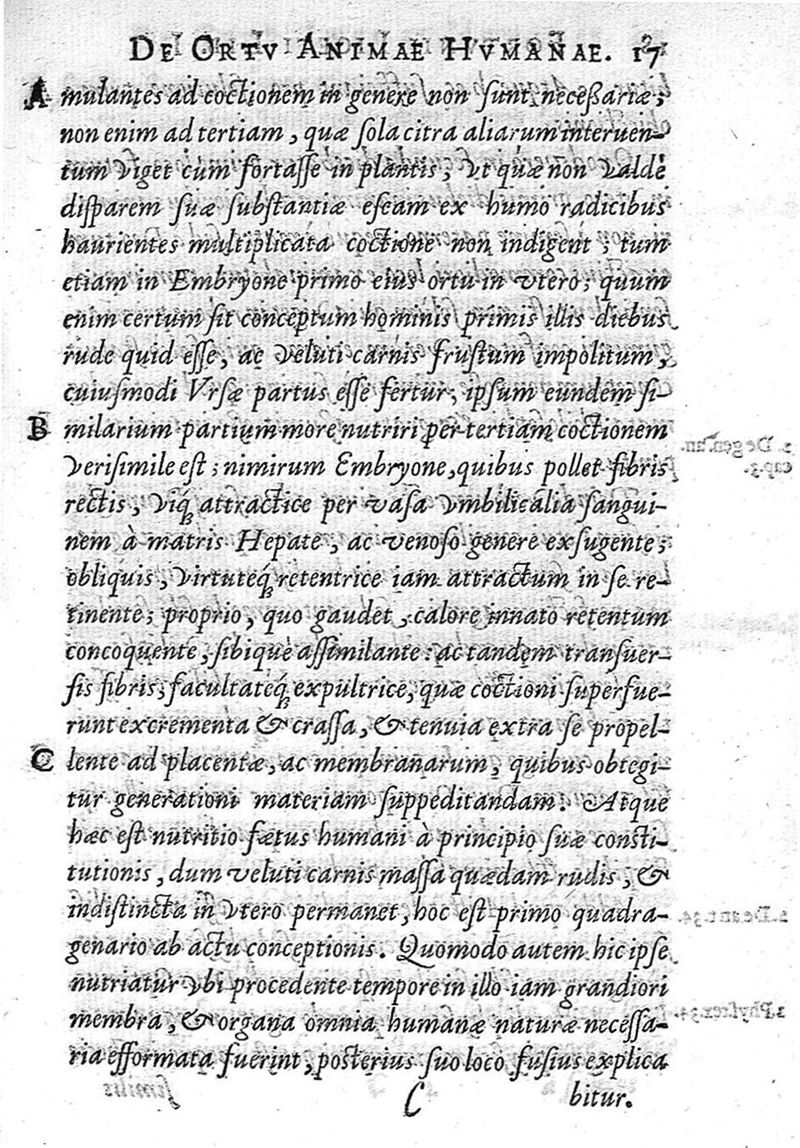 DE ORTV ANIMAE HVMANAE. 17
A mulantes ad coctionem in genere non sunt necessariæ;
non enim ad tertiam, quæ sola citra aliarum interuen-
tum viget cùm fortasse in plantis, vt quæ non valdè
disparem suæ substantiæ escam ex humo radicibus
haurientes multiplicata coctione non indigent; tum
etiam in Embryone primo eius ortu in vtero; quum
enim certum sit conceptum hominis primis illis diebus
rude quid esse, ac veluti carnis frustum impolitum,
cuiusmodi Vrsæ partus esse fertur; ipsum eundem si-
B milarium partium more nutriri per tertiam coctionem
verisimile est; nimirum Embryone, quibus pollet fibris
rectis, viq́ attractice per vasa vmbilicalia sangui-
nem à matris Hepate, ac venoso genere exsugente;
obliquis, virtuteq́ retentrice iam attractum in se re-
tinente; proprio, quo gaudet, calore innato retentum
concoquente, sibique assimilante: ac tandem transuer-
sis fibris, facultateq́ expultrice, quæ coctioni superfue-
runt excrementa & crassa, & tenuia extra se propel-
C lente ad placentæ, ac membranarum, quibus obtegi-
tur generationi materiam suppeditandam. Atque
hæc est nutritio fætus humani à principio suæ consti-
tutionis, dum veluti carnis massa quædam rudis, &
indistincta in vtero permanet, hoc est primo quadra-
genario ab actu conceptionis. Quomodo autem hic ipse
nutriatur vbi procedente tempore in illo iam grandiori
membra, & organa omnia humanæ naturæ necessa-
ria efformata fuerint, posterius suo loco fusius explica
C bitur.